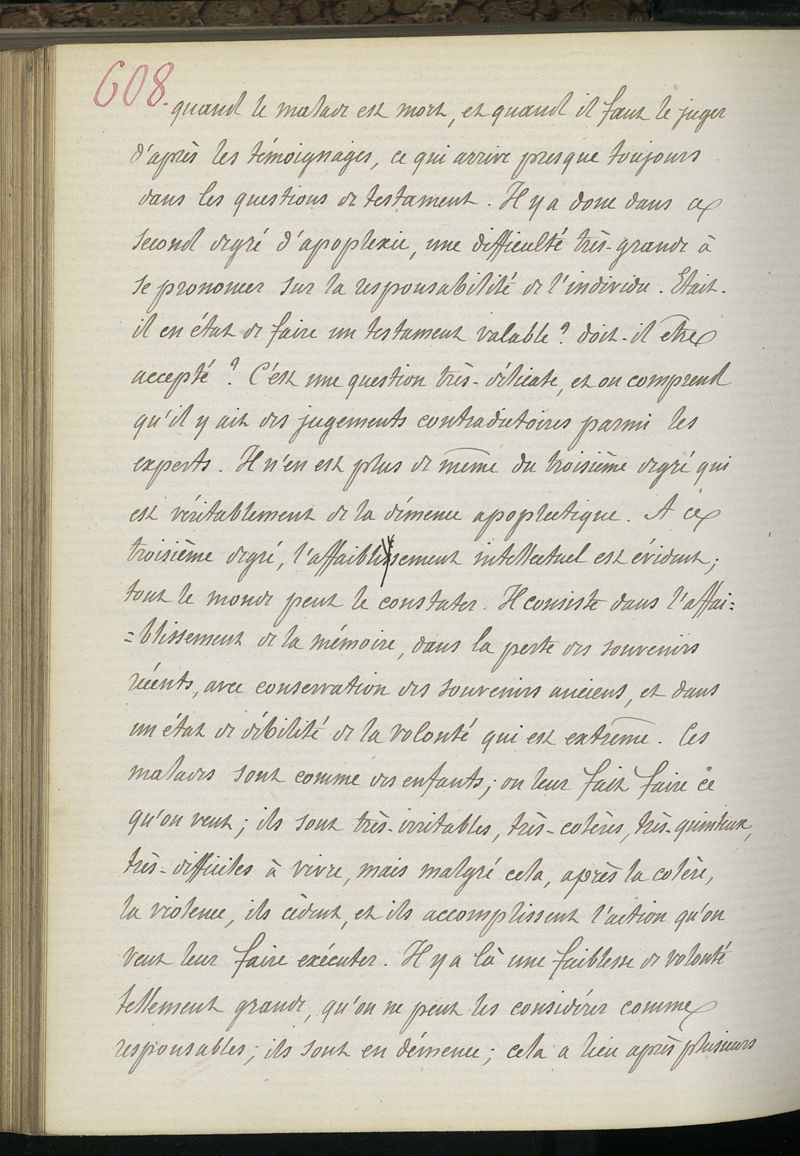 608.
quand le malade est mort, et quand il faut le juger
d'après les témoignages, ce qui arrive presque toujours
dans les questions de testament. Il y a donc dans ce
second degré d'apoplexie, une difficulté très-grande à
se prononcer sur la responsabilité de l'individu. Etait-
il en état de faire un testament valable? doit-il être
accepté? C'est une question très-délicate, et on comprend
qu'il y ait des jugements contradictoires parmi les
experts. Il n'en est plus de même du troisième degré qui
est véritablement de la démence apoplectique. A ce
troisième degré, l'affaiblissement intellectuel est évident;
tout le monde peut le constater. Il consiste dans l'affai=
=blissement de la mémoire, dans la perte des souvenirs
récents, avec conservation des souvenirs anciens, et dans
un état de débilité de la volonté qui est extrême. Ces
malades sont comme des enfants; on leur fait faire ce
qu'on veut; ils sont très-irritables, très-colères, très-quinteux,
très-difficiles à vivre, mais malgré cela, après la colère,
la violence, ils cèdent, et ils accomplissent l'action qu'on
veut leur faire exécuter. Il y a là une faiblesse de volonté
tellement grande, qu'on ne peut les considérer comme
responsables; ils sont en démence; cela a lieu après plusieurs